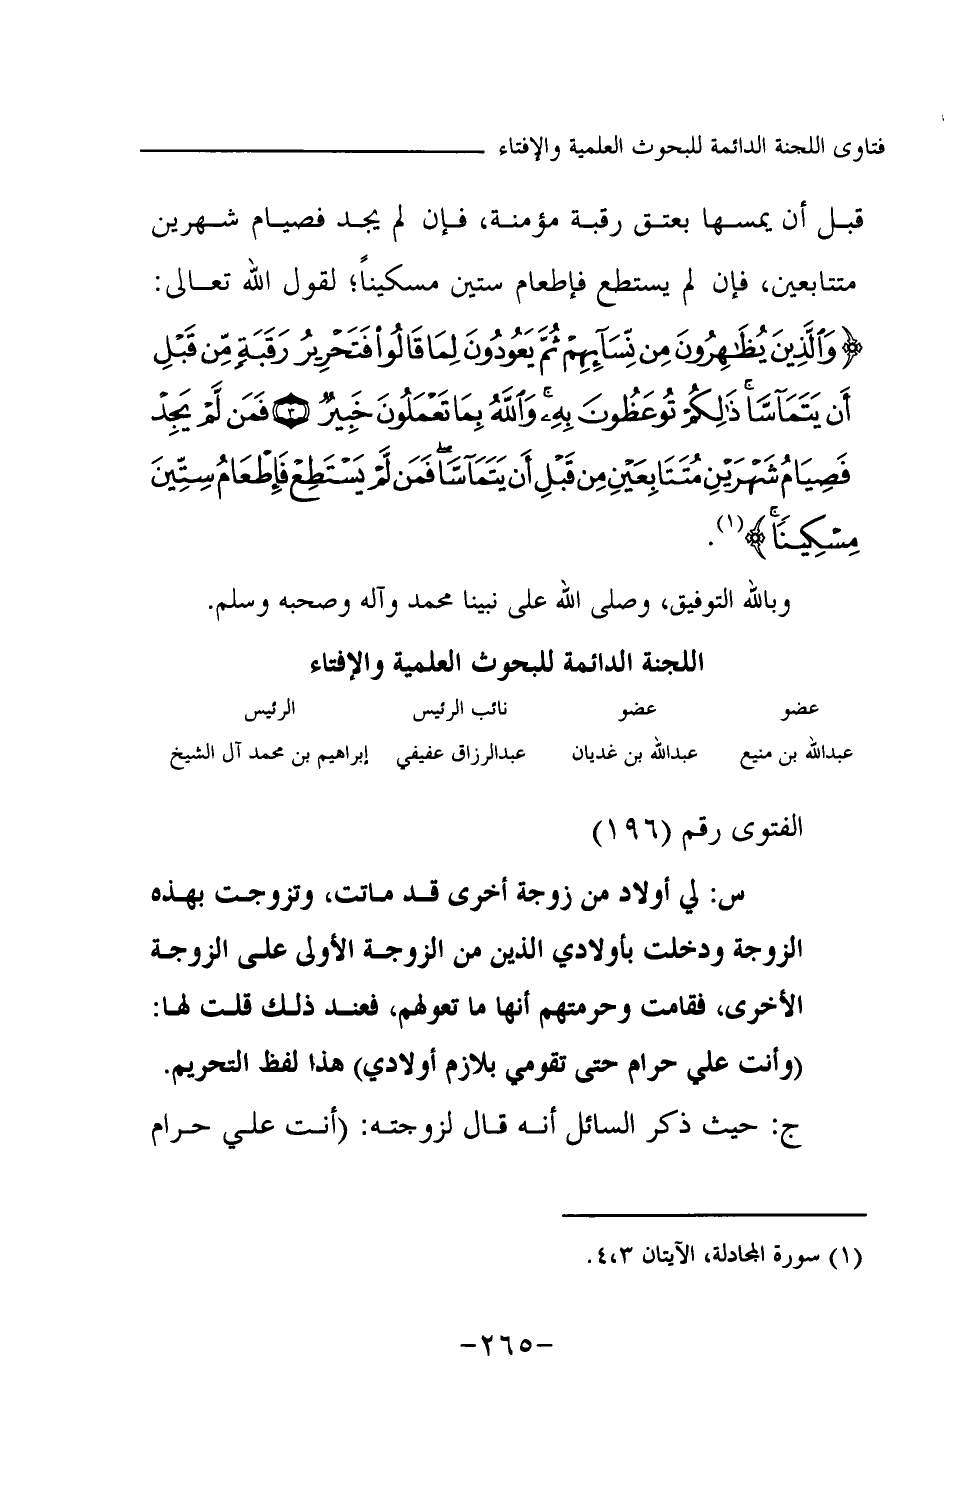 فتاوى اللجنة الدائمة للبحوث العلمية والإفتاء
قبل أن يمسها بعتق رقبة مؤمنة، فإن لم يجد فصيام شهرين
متتابعين، فإن لم يستطع فإطعام ستين مسكيناً؛ لقول الله تعالى:
﴿وَٱلَّذِينَ يُظَٰهِرُونَ مِن نِّسَآئِهِمْ ثُمَّ يَعُودُونَ لِمَا قَالُوا۟ فَتَحْرِيرُ رَقَبَةٍ مِّن قَبْلِ
أَن يَتَمَآسَّا ۚ ذَٰلِكُمْ تُوعَظُونَ بِهِۦ ۚ وَٱللَّهُ بِمَا تَعْمَلُونَ خَبِيرٌ ٣ فَمَن لَّمْ يَجِدْ
فَصِيَامُ شَهْرَيْنِ مُتَتَابِعَيْنِ مِن قَبْلِ أَن يَتَمَآسَّا ۖ فَمَن لَّمْ يَسْتَطِعْ فَإِطْعَامُ سِتِّينَ
مِسْكِينًا ۚ﴾(١).
وبالله التوفيق، وصلى الله على نبينا محمد وآله وصحبه وسلم.
اللجنة الدائمة للبحوث العلمية والإفتاء
عضو عضو نائب الرئيس الرئيس
عبدالله بن منيع عبدالله بن غديان عبدالرزاق عفيفي إبراهيم بن محمد آل الشيخ
الفتوى رقم (١٩٦)
س: لي أولاد من زوجة أخرى قد ماتت، وتزوجت بهذه
الزوجة ودخلت بأولادي الذين من الزوجة الأولى على الزوجة
الأخرى، فقامت وحرمتهم أنها ما تعولهم، فعند ذلك قلت لها:
(وأنت علي حرام حتى تقومي بلازم أولادي) هذا لفظ التحريم.
ج: حيث ذكر السائل أنه قال لزوجته: (أنت علي حرام
(١) سورة المجادلة، الآيتان ٤،٣.
-٢٦٥-